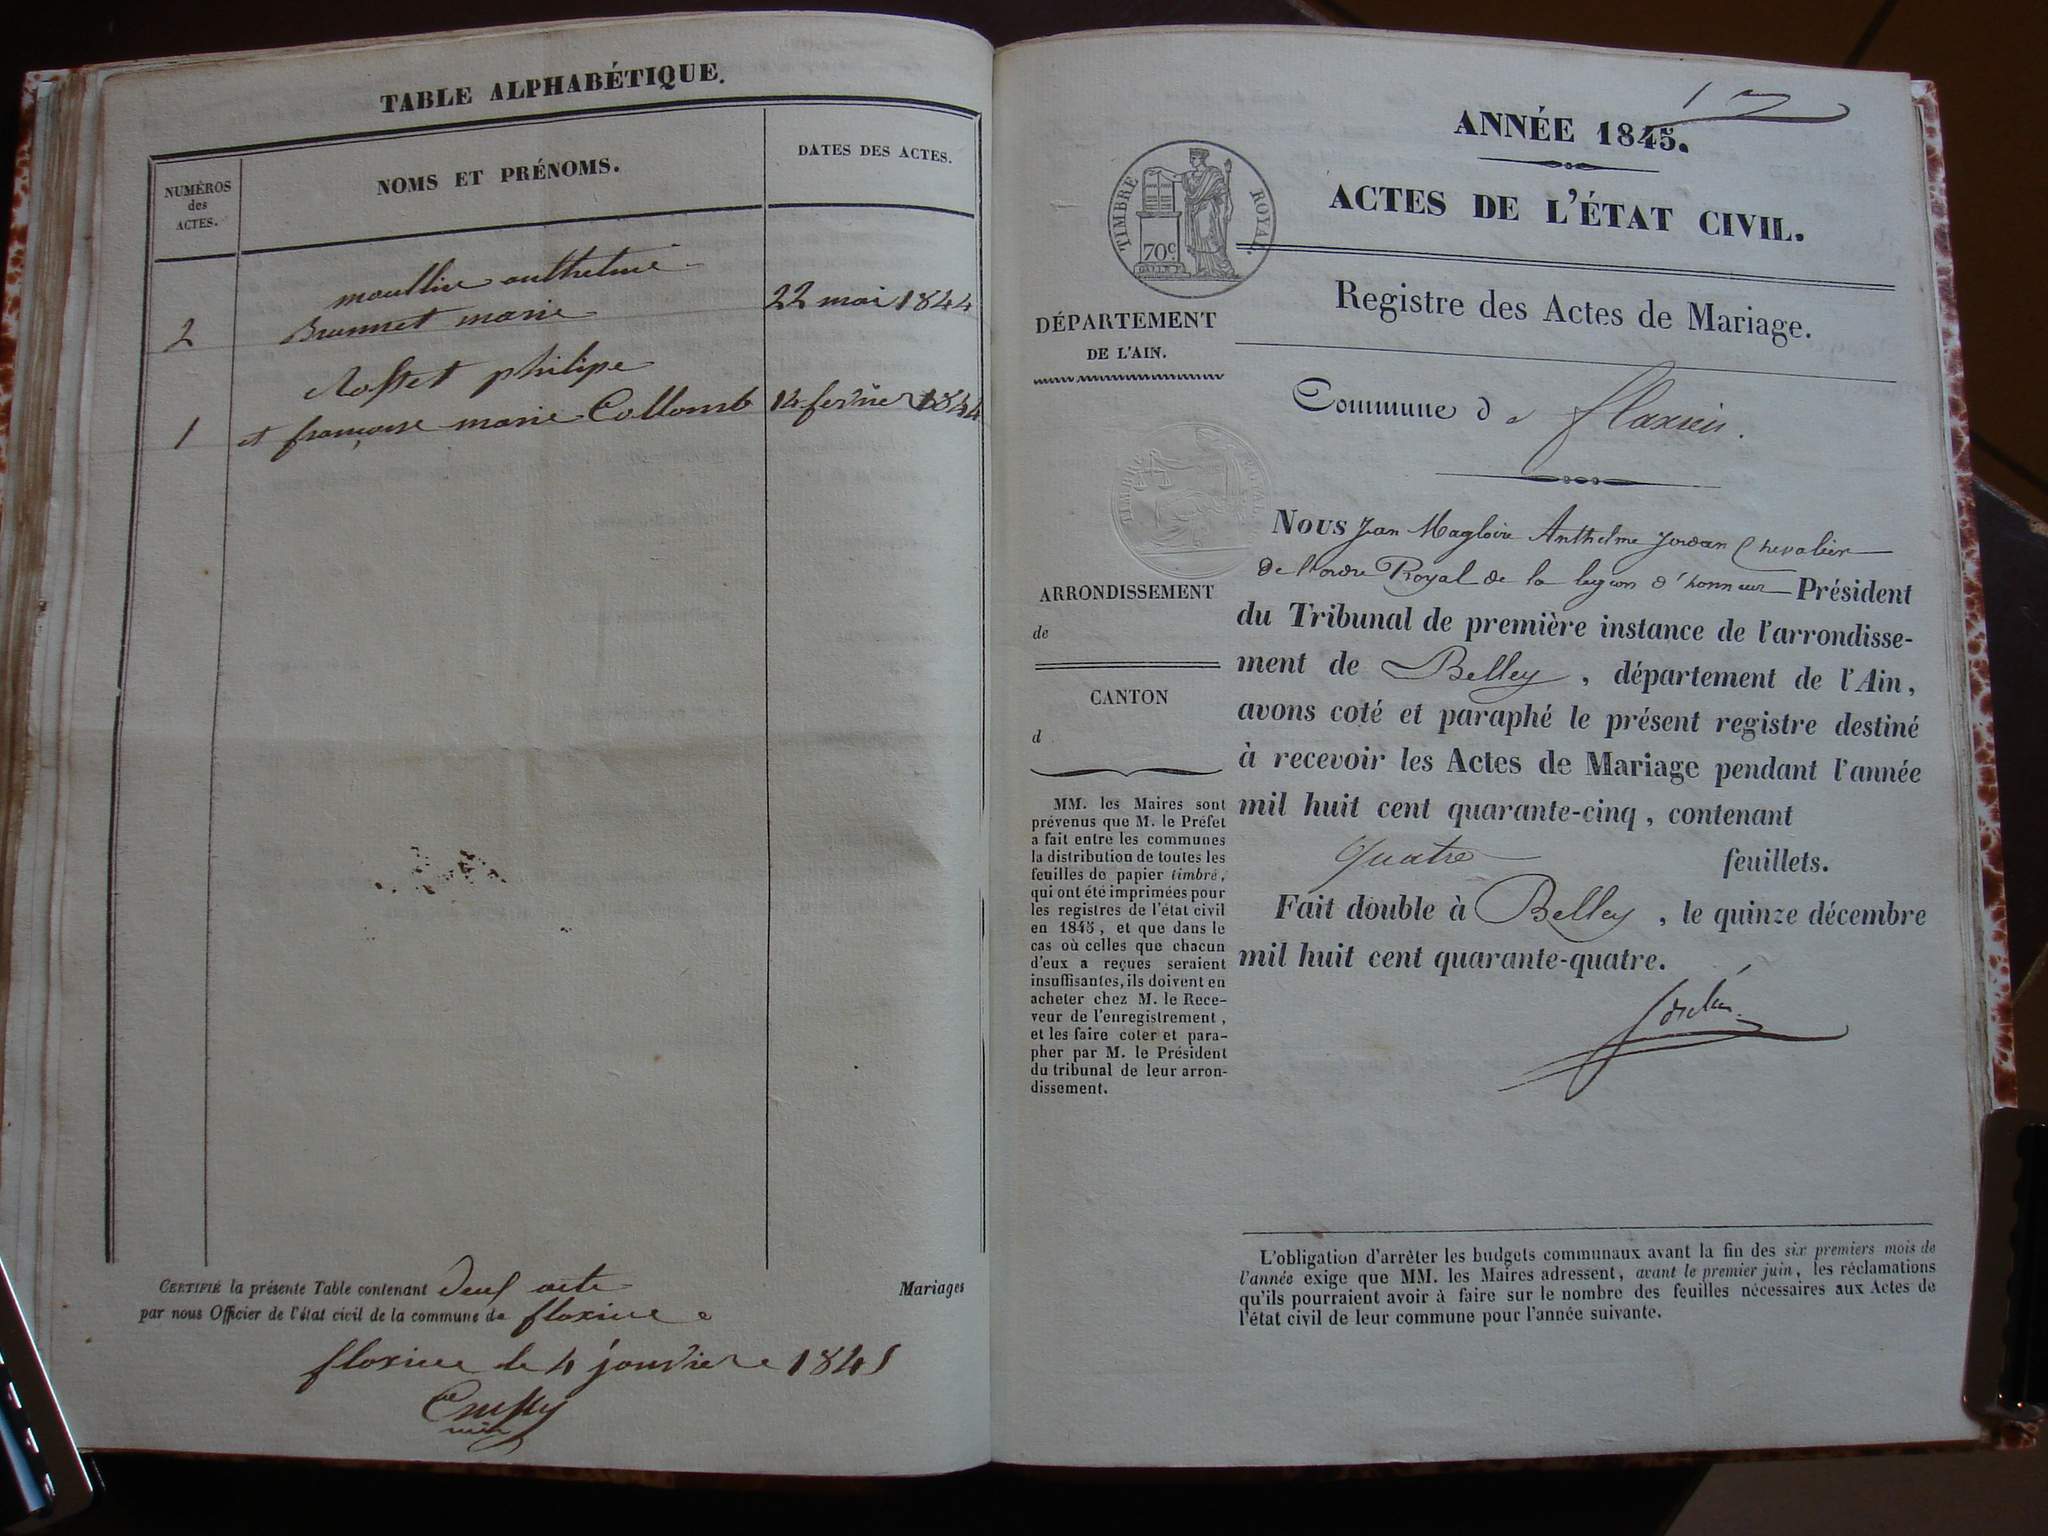 TABLE ALPHABÉTIQUE.
NUMÉROS
des
ACTES.
NOMS ET PRÉNOMS.
DATES DES ACTES.
anthelme
2 Brunnet marie 22 mai 1844
Rosset philipe
1 et françoise marie Collomb 14 fevrier 1844
CERTIFIÉ la présente Table contenant deux acte Mariages
par nous Officier de l'état civil de la commune de
le 4 janvier 1845
ANNÉE 1845.
ACTES DE L'ÉTAT CIVIL.
TIMBRE ROYAL.
70c
Registre des Actes de Mariage.
DÉPARTEMENT
DE L'AIN.
Commune de flaxieu.
TIMBRE ROYAL
Nous Jean Magloire Anthelme Jordan Chevalier
de l'ordre Royal de la legion d'honneur Président
du Tribunal de première instance de l'arrondisse-
ment de Belley, département de l'Ain,
avons coté et paraphé le présent registre destiné
à recevoir les Actes de Mariage pendant l'année
mil huit cent quarante-cinq, contenant
quatre feuillets.
Fait double à Belley, le quinze décembre
mil huit cent quarante-quatre.
ARRONDISSEMENT
de
CANTON
d
MM. les Maires sont
prévenus que M. le Préfet
a fait entre les communes
la distribution de toutes les
feuilles de papier timbré,
qui ont été imprimées pour
les registres de l'état civil
en 1845, et que dans le
cas où celles que chacun
d'eux a reçues seraient
insuffisantes, ils doivent en
acheter chez M. le Rece-
veur de l'enregistrement,
et les faire coter et para-
pher par M. le Président
du tribunal de leur arron-
dissement.
L'obligation d'arrêter les budgets communaux avant la fin des six premiers mois de
l'année exige que MM. les Maires adressent, avant le premier juin, les réclamations
qu'ils pourraient avoir à faire sur le nombre des feuilles nécessaires aux Actes de
l'état civil de leur commune pour l'année suivante.